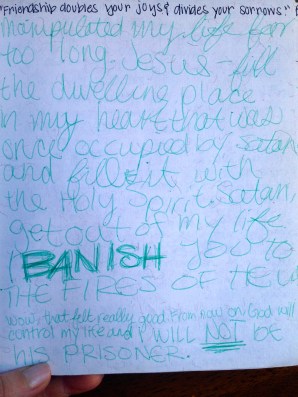 "Friendship doubles your joys & divides your sorrows."
manipulated my life for
too long. Jesus - fill
the dwelling place
in my heart that was
once occupied by satan
and fill it with
the Holy Spirit. Satan,
get out of my life
I BANISH you to
THE FIRES OF HELL
Wow, that felt really good. From now on, God will
control my life and I WILL NOT BE
HIS PRISONER.